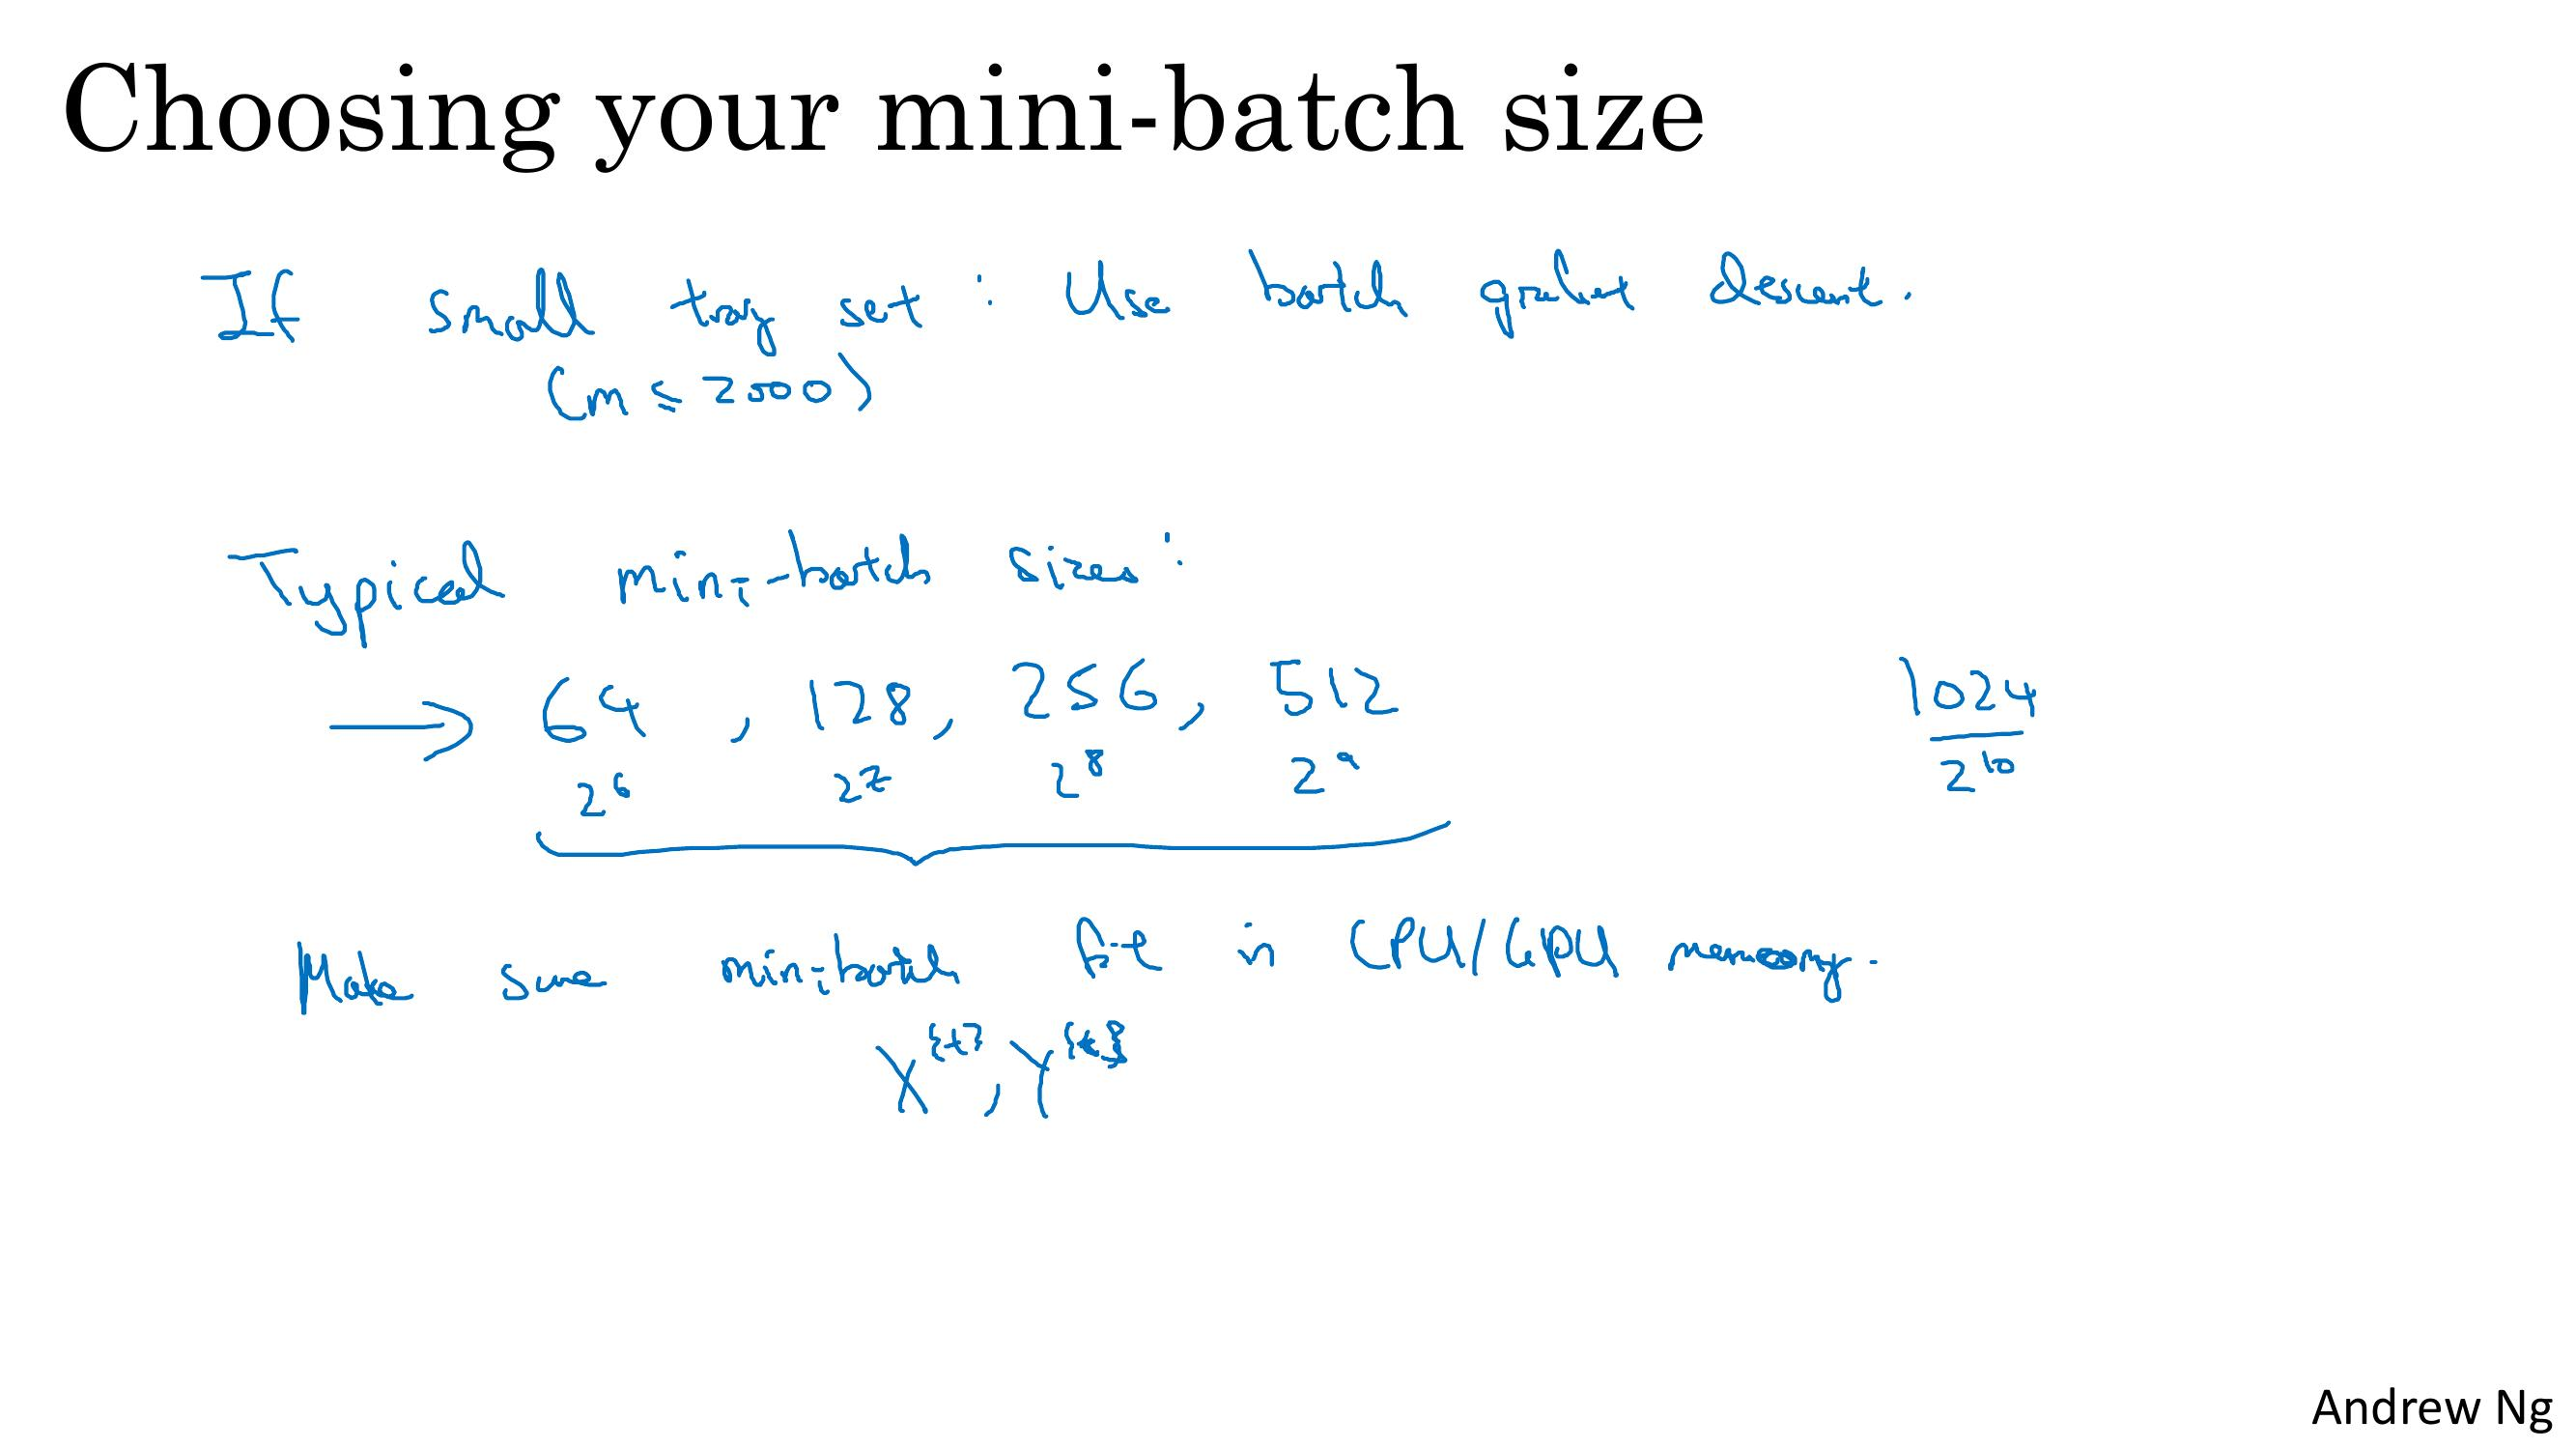 Choosing your mini-batch size
If small tray set : Use batch gradient descent.
(m ≤ 2000)
Typical mini-batch sizes:
→ 64 , 128, 256, 512 1024
2⁶ 2⁷ 2⁸ 2⁹ 2¹⁰
Make sure mini-batch fit in CPU/GPU memory.
X^{t}, Y^{t}
Andrew Ng